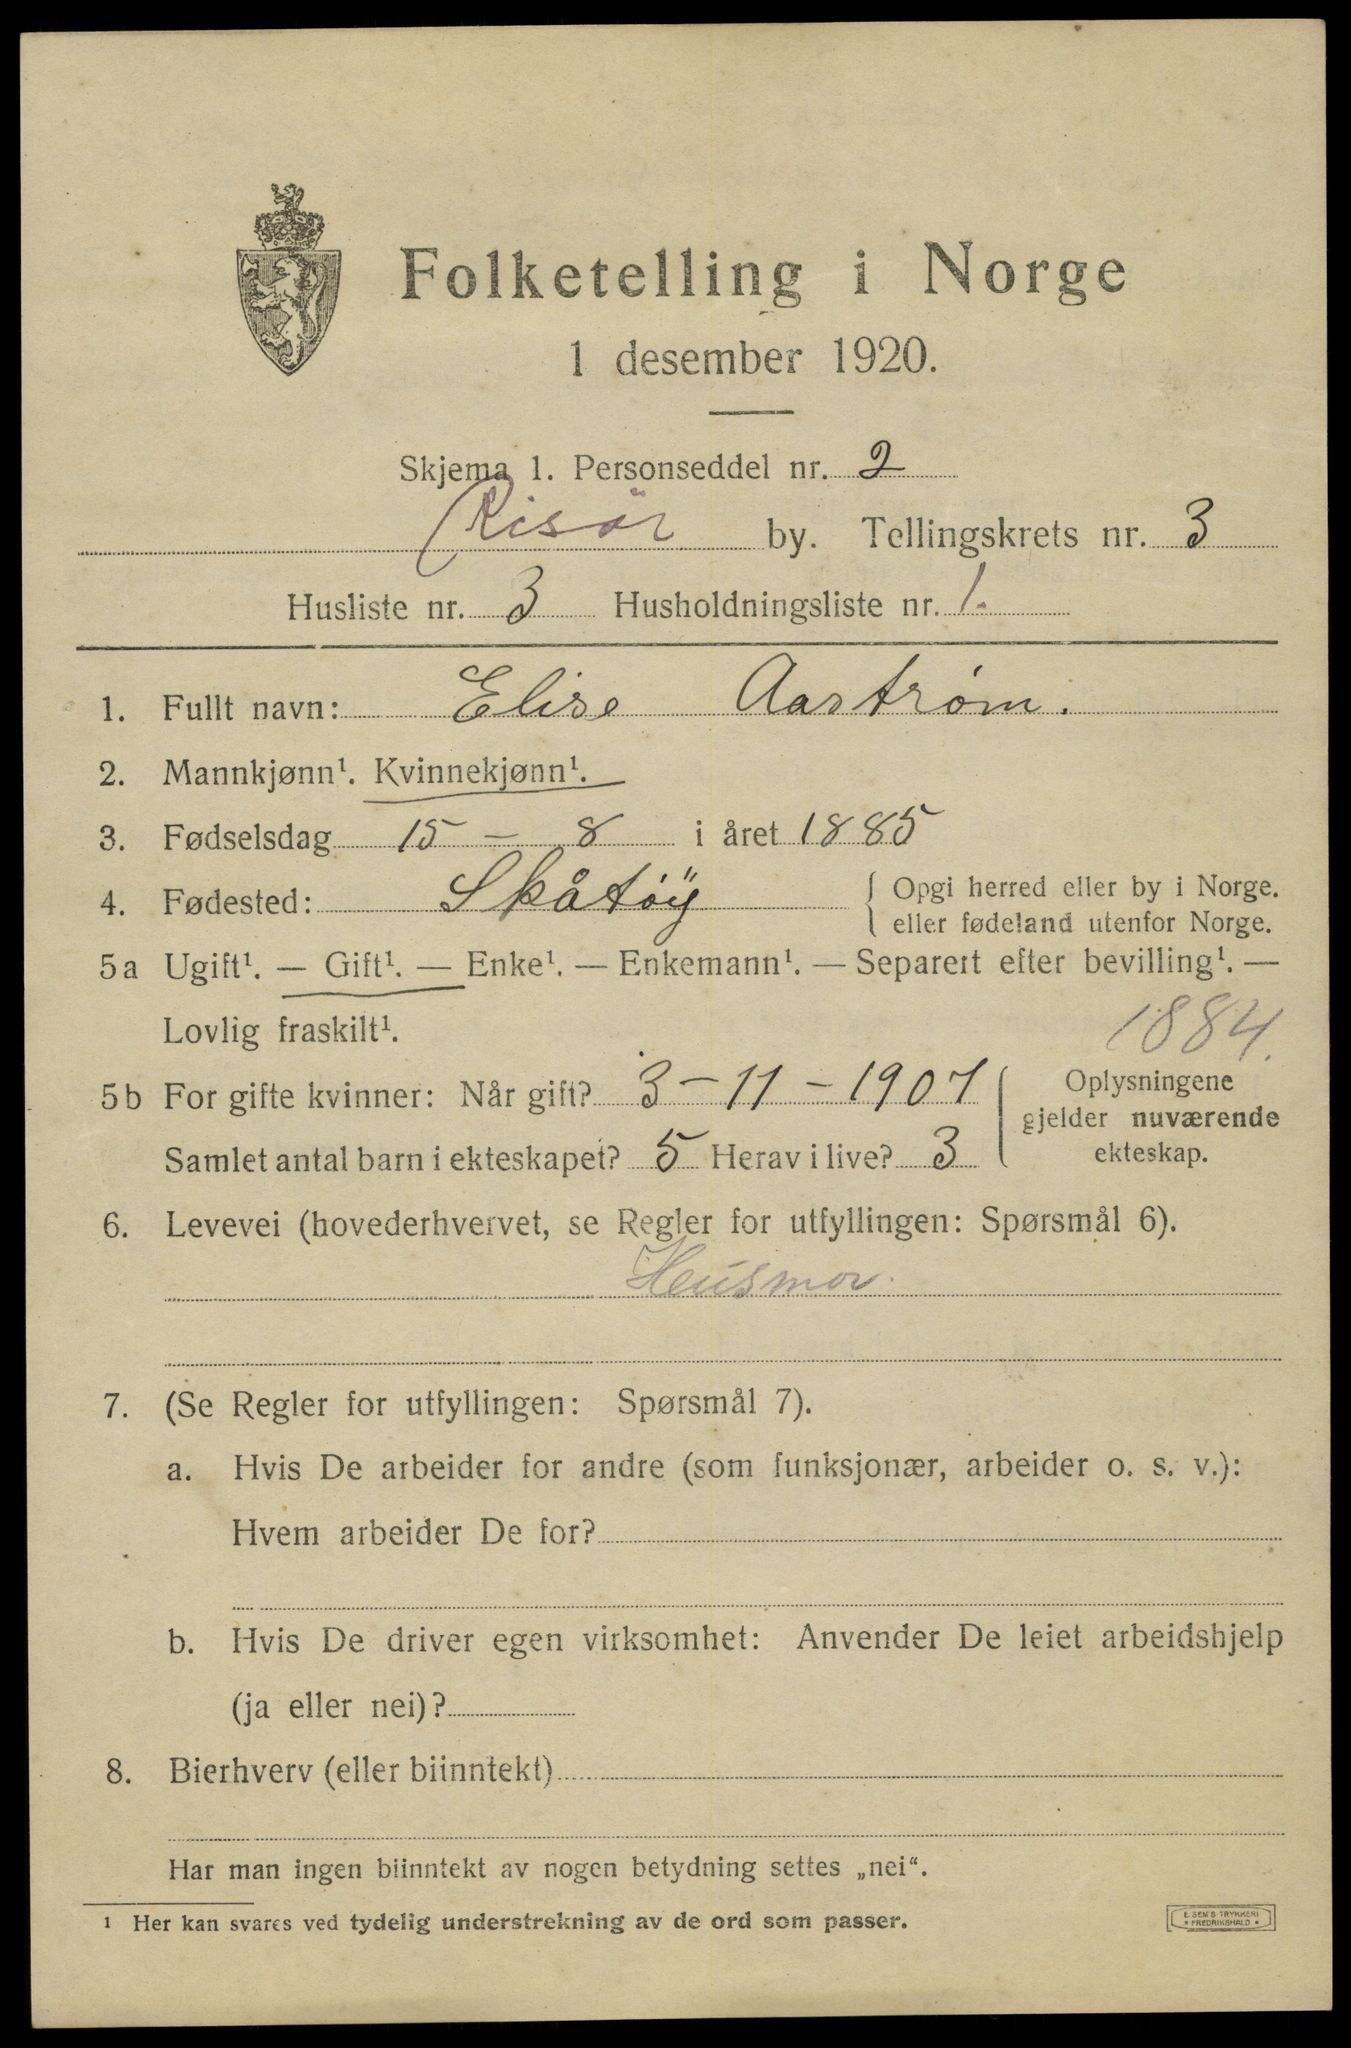 Folketelling i Norge
1 desember 1920.
Skjema 1. Personseddel nr. 2
Risør by. Tellingskrets nr. 3
Husliste nr. 3 Husholdningsliste nr. 1.
1. Fullt navn: Elise Aastrøm.
2. Mannkjønn¹. Kvinnekjønn¹.
3. Fødselsdag 15 - 8 i året 1885
4. Fødested: Skåtöy { Opgi herred eller by i Norge.
{ eller fødeland utenfor Norge.
5a Ugift¹. — Gift¹. — Enke¹. — Enkemann¹. — Separert efter bevilling¹. —
Lovlig fraskilt¹.
1884.
5b For gifte kvinner: Når gift? 3 - 11 - 1907
Samlet antal barn i ekteskapet? 5 Herav i live? 3
Oplysningene
gjelder nuværende
ekteskap.
6. Levevei (hovederhvervet, se Regler for utfyllingen: Spørsmål 6).
Husmor.
7. (Se Regler for utfyllingen: Spørsmål 7).
a. Hvis De arbeider for andre (som funksjonær, arbeider o. s. v.):
Hvem arbeider De for?
b. Hvis De driver egen virksomhet: Anvender De leiet arbeidshjelp
(ja eller nei)?
8. Bierhverv (eller biinntekt)
Har man ingen biinntekt av nogen betydning settes „nei“.
1 Her kan svares ved tydelig understrekning av de ord som passer.
E. SEM'S TRYKKERI
* FREDRIKSHALD *